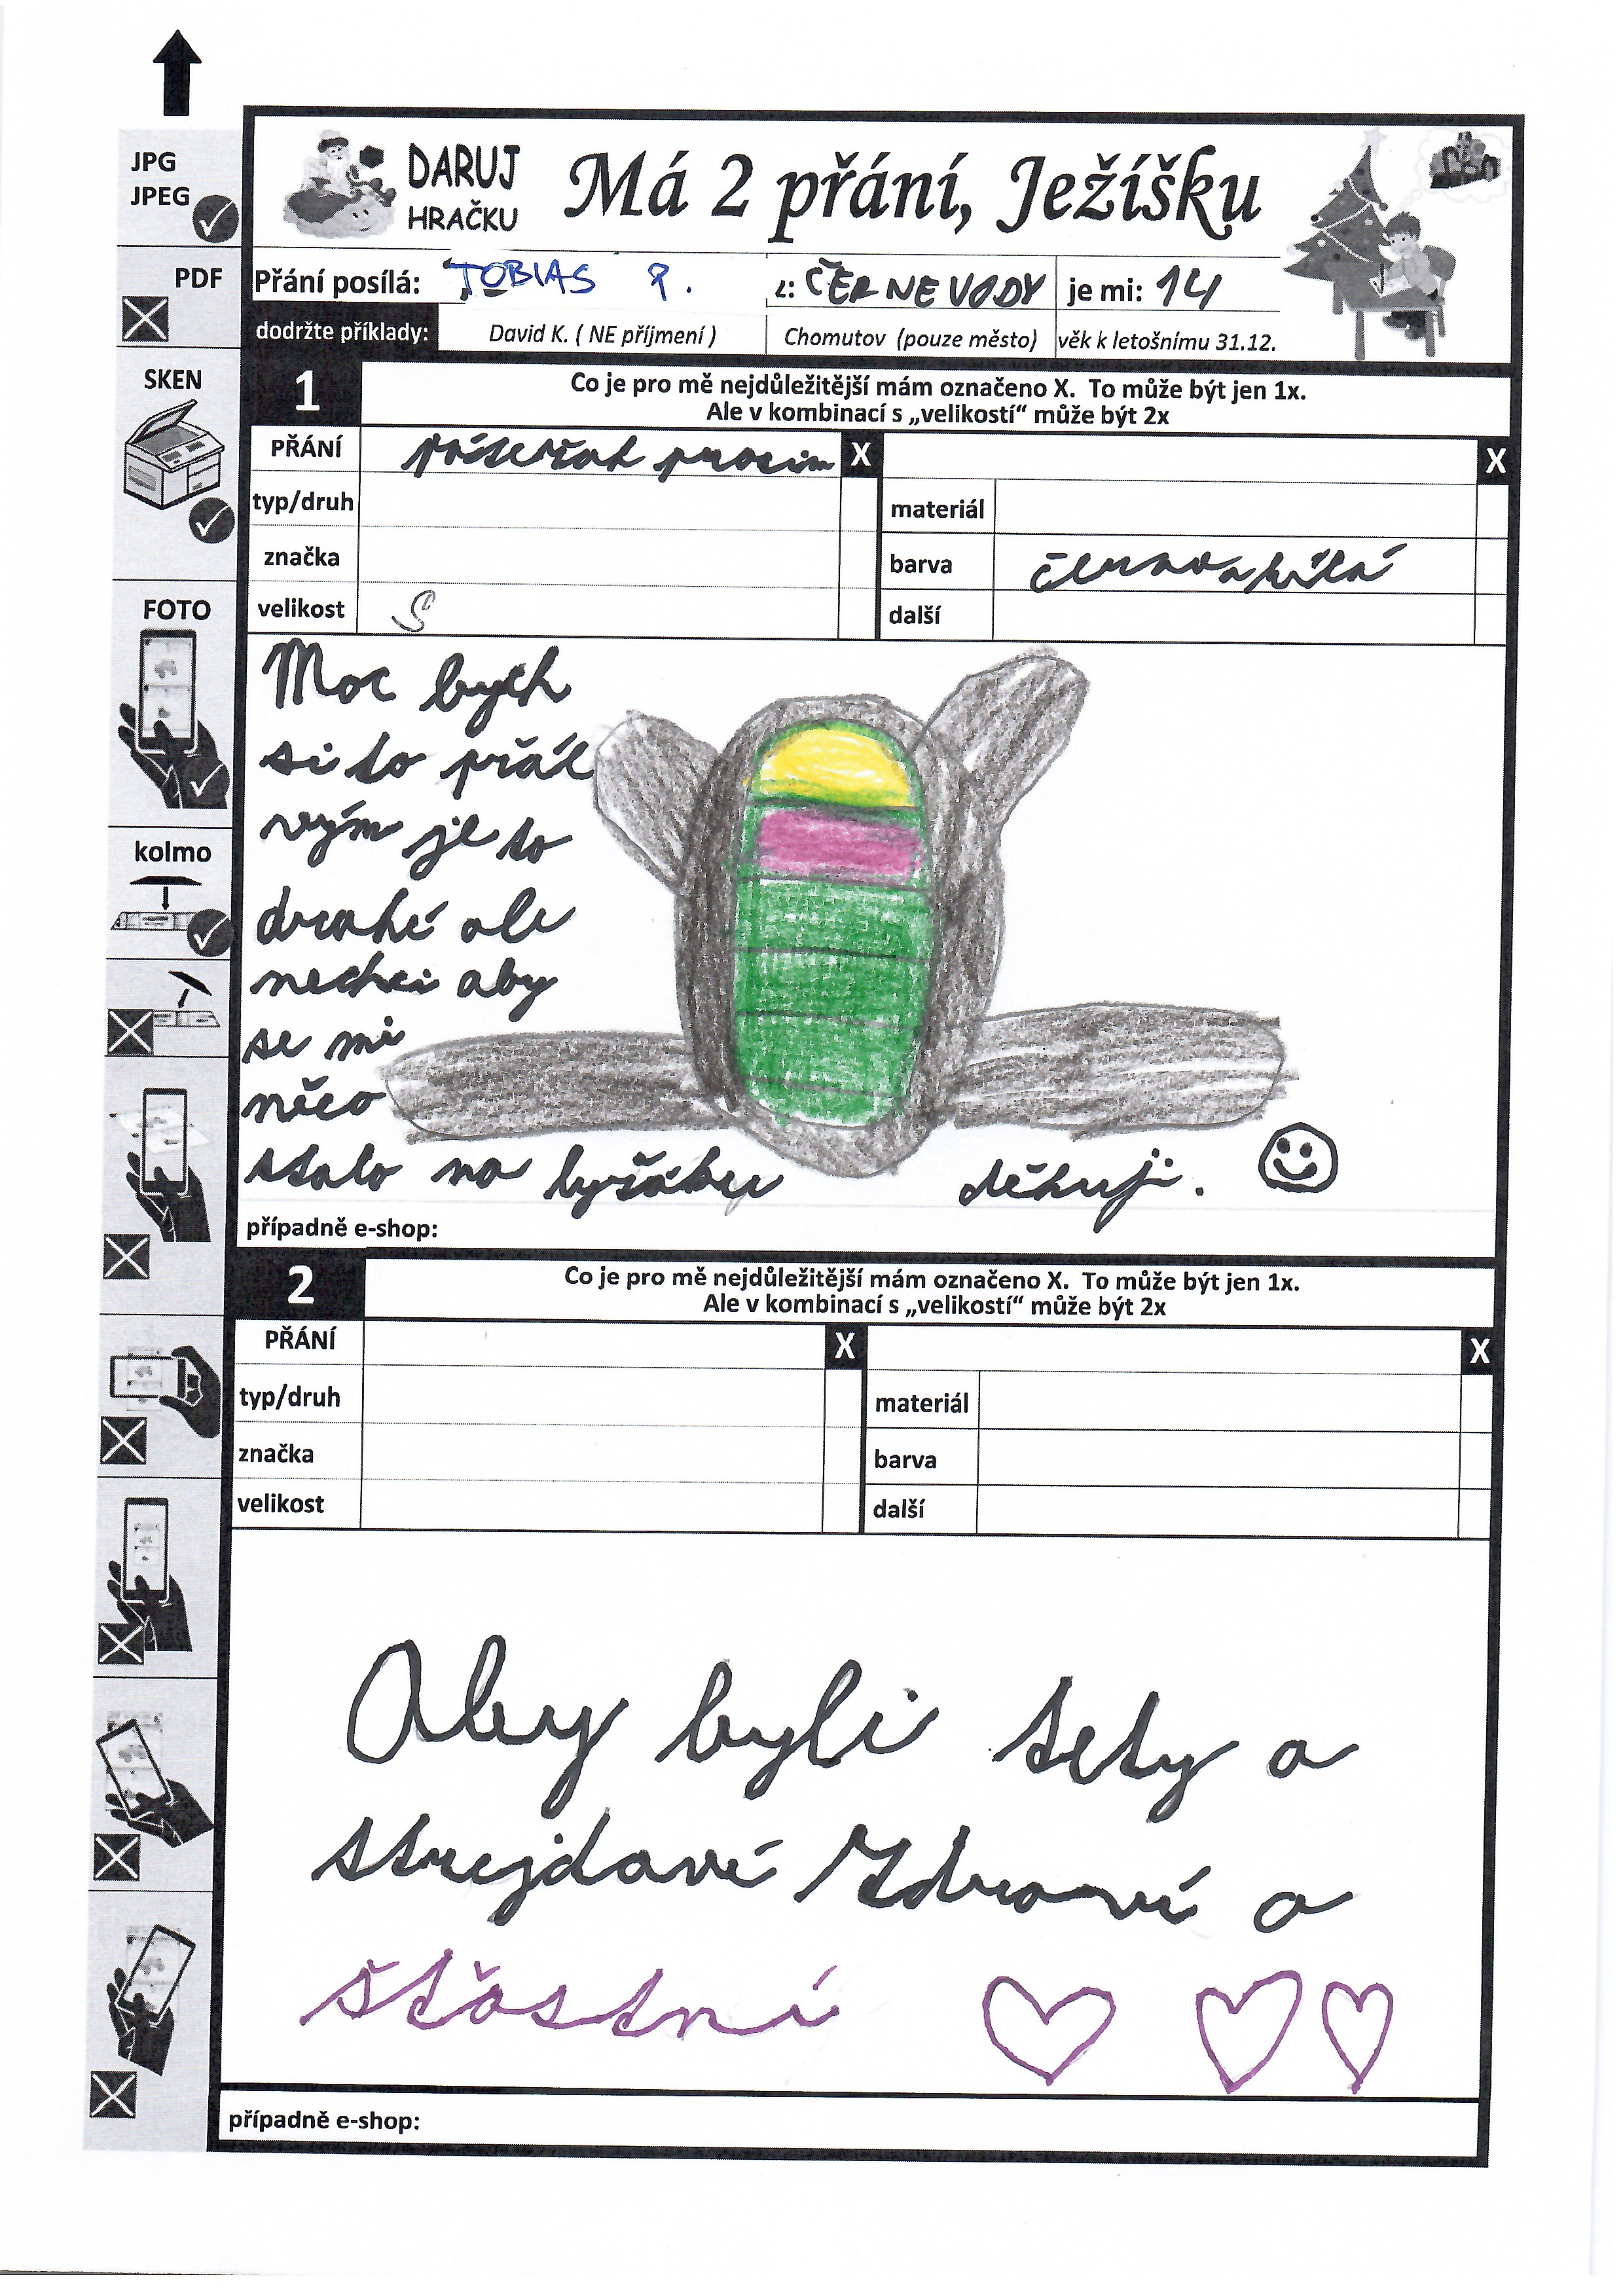 JPG
JPEG
PDF
SKEN
FOTO
kolmo
DARUJ
HRAČKU
Má 2 přání, Ježíšku
Přání posílá: TOBIAS P. z: ČERNE VODY je mi: 14
dodržte příklady: David K. ( NE příjmení ) Chomutov (pouze město) věk k letošnímu 31.12.
1 Co je pro mě nejdůležitější mám označeno X. To může být jen 1x.
Ale v kombinací s „velikostí“ může být 2x
PŘÁNÍ páteřák prosím X X
typ/druh materiál
značka barva
velikost S další
Moc bych
si to přál
vým je to
drahé ale
nechci aby
se mi
něco
stalo na
děkuji.
případně e-shop:
2 Co je pro mě nejdůležitější mám označeno X. To může být jen 1x.
Ale v kombinací s „velikostí“ může být 2x
PŘÁNÍ X X
typ/druh materiál
značka barva
velikost další
Aby byli tety a
strejdové zdraví a
šťastní
případně e-shop: